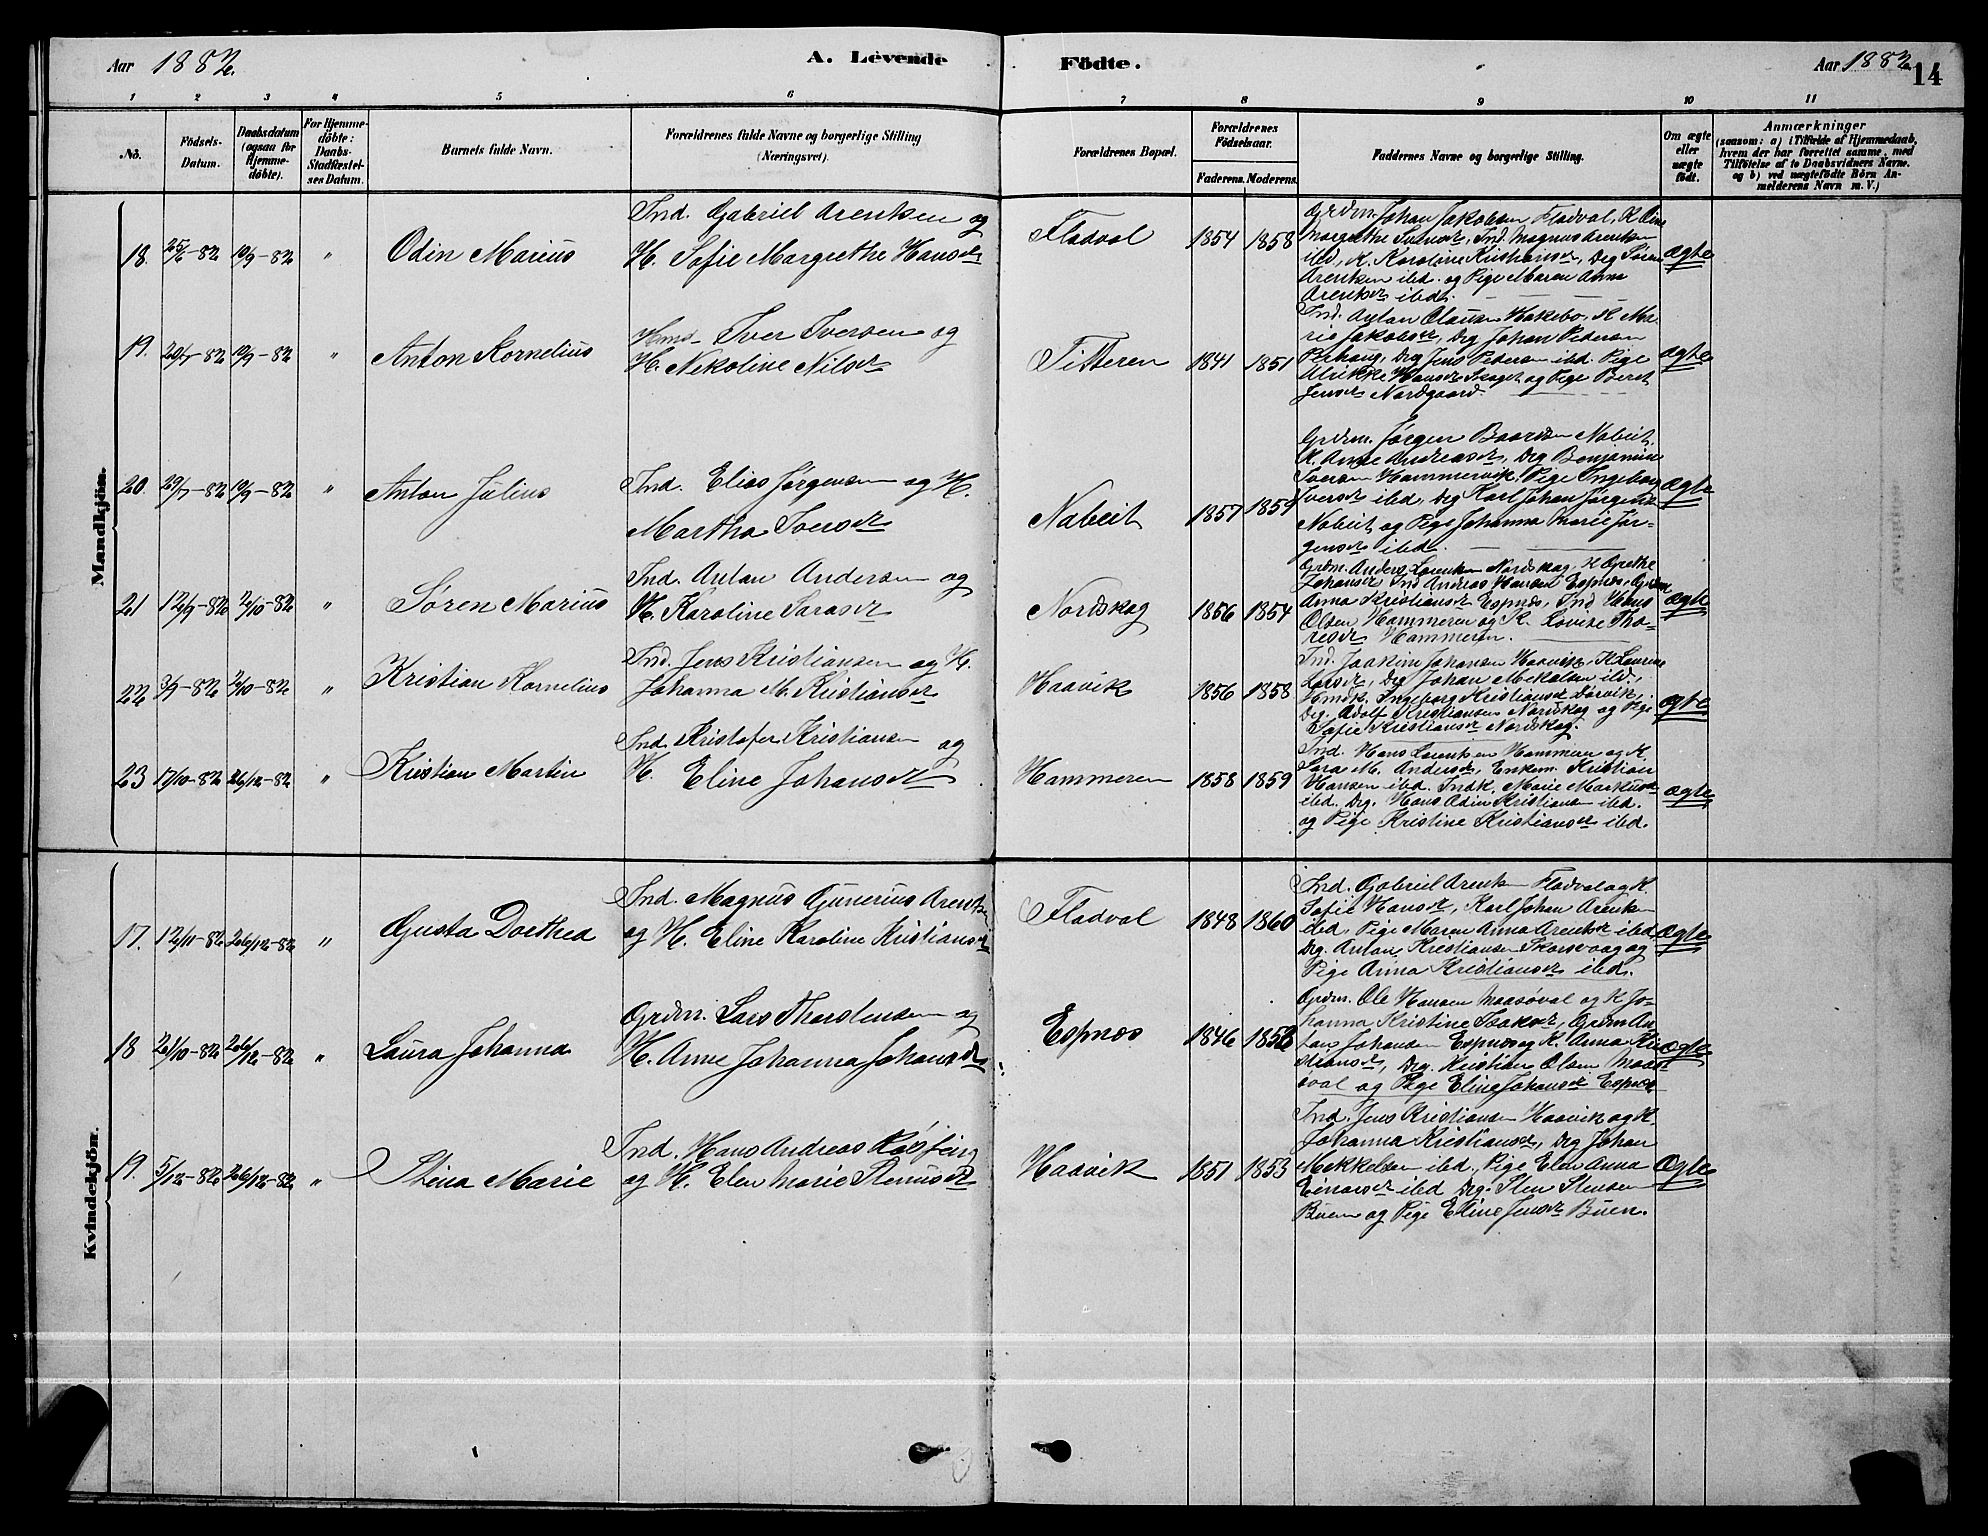 Aar 1882.
A. Levende Födte.
Aar 1882
14
1 2 3 4 5 6 7 8 9 10 11
No.
Födsels-
Datum.
Daabsdatum
(ogsaa for
Hjemme-
döbte).
For Hjemme-
döbte:
Daabs-
Stadfæstel-
ses Datum.
Barnets fulde Navn.
Forældrenes fulde Navne og borgerlige Stilling
(Næringsvei).
Forældrenes Bopæl.
Forældrenes
Födselsaar.
Faderens. Moderens.
Faddernes Navne og borgerlige Stilling.
Om ægte
eller
uægte
födt.
Anmærkninger
(saasom: a) i Tilfælde af Hjemmedaab,
hvem der har forrettet samme, med
Tilföielse af to Daabsvidners Navne.
og b) ved uægtefödte Börn An-
melderens Navn m. V.)
Mandkjön.
18. 10/9-82 " Odin Marius
Ind. Gabriel Arentsen og
H. Sofie Margrethe Hansdr
Fladval 1854 1858
Grdm. Johan Jakobsen Fladval, K.
Margrethe Ind. Magnus Arentsen
ibd, K. Karoline Kristiansdr, Drg Sören
Arentsen ibd. og Pige Maren Anna
Arentsdr ibd.
ægte
19. 10/9-82 " Anton Kornelius
Iver Iversen og
H. Nekoline Nilsdr
Titteren 1841 1851
Ind. Anton Olausen K. Ma-
rie Jakobsdr, Drg Johan Pedersen
Drg Jens Pedersen ibd. Pige
Ulrikke Hansdr og Pige Beret
Jensdr Nordgaard.
ægte
20. 29/7-82 10/9-82 " Anton Julius
Ind. Elias Jørgensen og H.
Martha Iversdr
Nabeit 1857 1859
Grdm. Jørgen Baardsen Nabeit.
K. Anne Andreasdr, Drg Benjamin
Iversen Hammervik, Pige Ingeborg
Iversdr ibd, Drg Karl Johan Jørgensen
Nabeit og Pige Johanna Marie Jør-
gensdr ibd.
ægte
21 12/9-82 2/10-82 " Søren Marius
Ind. Anton Andersen og
H. Karoline Larsdr
Nordskag 1856 1854
Grdm. Anders Lorentsen Nordskag, K Grethe
Johansdr Ind Andreas Hansen Espnes, Grdm
Anna Kristiansdr Espnes, Ind Hans
Olsen Hammeren og K. Lovise Tho-
resdr Hammeren.
ægte
22 3/9-82 2/10-82 " Kristian Kornelius
Ind. Jens Kristiansen og H.
Johanna M. Kristiansdr
Haavik 1856 1858
Ind. Joakim Johansen Haavik, K Laurine
Larsdr, Drg Johan Mekelsen ibd.,
Ingeborg Kristiansdr
Drg. Adolf Kristiansen Nordskag og Pige
Sofie Kristiansdr Nordskag.
ægte
23 17/10-82 26/12-82 " Kristian Martin
Ind. Kristofer Kristiansen og
H. Eline Johansdr
Hammeren 1858 1859
Ind. Hans Lorentsen Hammeren og K.
Sara M. Andersdr, Enkem. Kristian
Hansen ibd. Indk. Marie Markusdr
ibd. Drg. Hans Odin Kristiansen ibd.
og Pige Kristine Kristiansdr ibd.
ægte
Kvindekjön.
17. 12/11-82 26/12-82 " Gusta Dorthea
Ind. Magnus Gunerius Arents
og H. Eline Karoline Kristiansdr
Fladval 1848 1860
Ind. Gabriel Arentsen Fladval og K.
Sofie Hansdr, Karl Johan Arentsen
ibd, Pige Maren Anna Arentsdr ibd
Drg. Anton Kristiansen Skarsvaag og
Pige Anna Kristiansdr ibd.
ægte
18 21/10-82 26/12-82 " Laura Johanna
Grdm. Lars Thorstensen og
H. Anne Johanna Johansdr
Espnes 1846
Grdm. Ole Hansen Maasöval og K Jo-
hanna Kristine Isaksdr, Grdm An-
Johansen Espnes og K. Anna Kri-
stiansdr, Drg. Kristian Olsen Maasö-
val og Pige Eline Johansdr Espnes
ægte
19. 5/12-82 26/12-82 " Stina Marie
Ind. Hans Andreas
og H. Elen Marie Stensdr
Haavik 1851 1853
Ind. Jens Kristiansen Haavik og K.
Johanna Kristiansdr, Drg Johan
Mekkelsen ibd., Pige Elen Anna
Einarsdr ibd Drg. Sten Stensen
Buen og Pige Eline Jensdr Buen.
Ægte